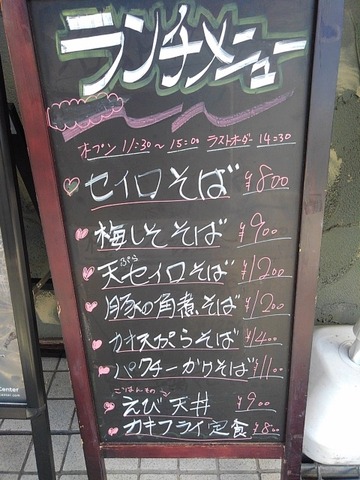 ランチメニュー
オープン 11:30～15:00 ラストオーダー 14:30
セイロそば ¥800
梅しそそば ¥900
天ぷらセイロそば ¥1200
豚の角煮そば ¥1200
カキ天ぷらそば ¥1400
パクチーかけそば ¥1100
ごはんもの
えび天丼 ¥900
カキフライ定食 ¥800
Center